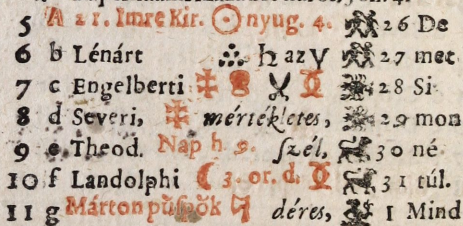 5 A 21. Imre Kir. ☉ nyug. 4. 26 De
6 b Lénárt ♄ az ♈ 27 met
7 c Engelberti 28 Si
8 d Severi, mértékletes, 29 mon
9 e Theod. Nap h. 9. ſzél, 30 né
10 f Landolphi ☾ 3. or. d. 31 túl.
11 g Márton pűſpők déres, 1 Mind